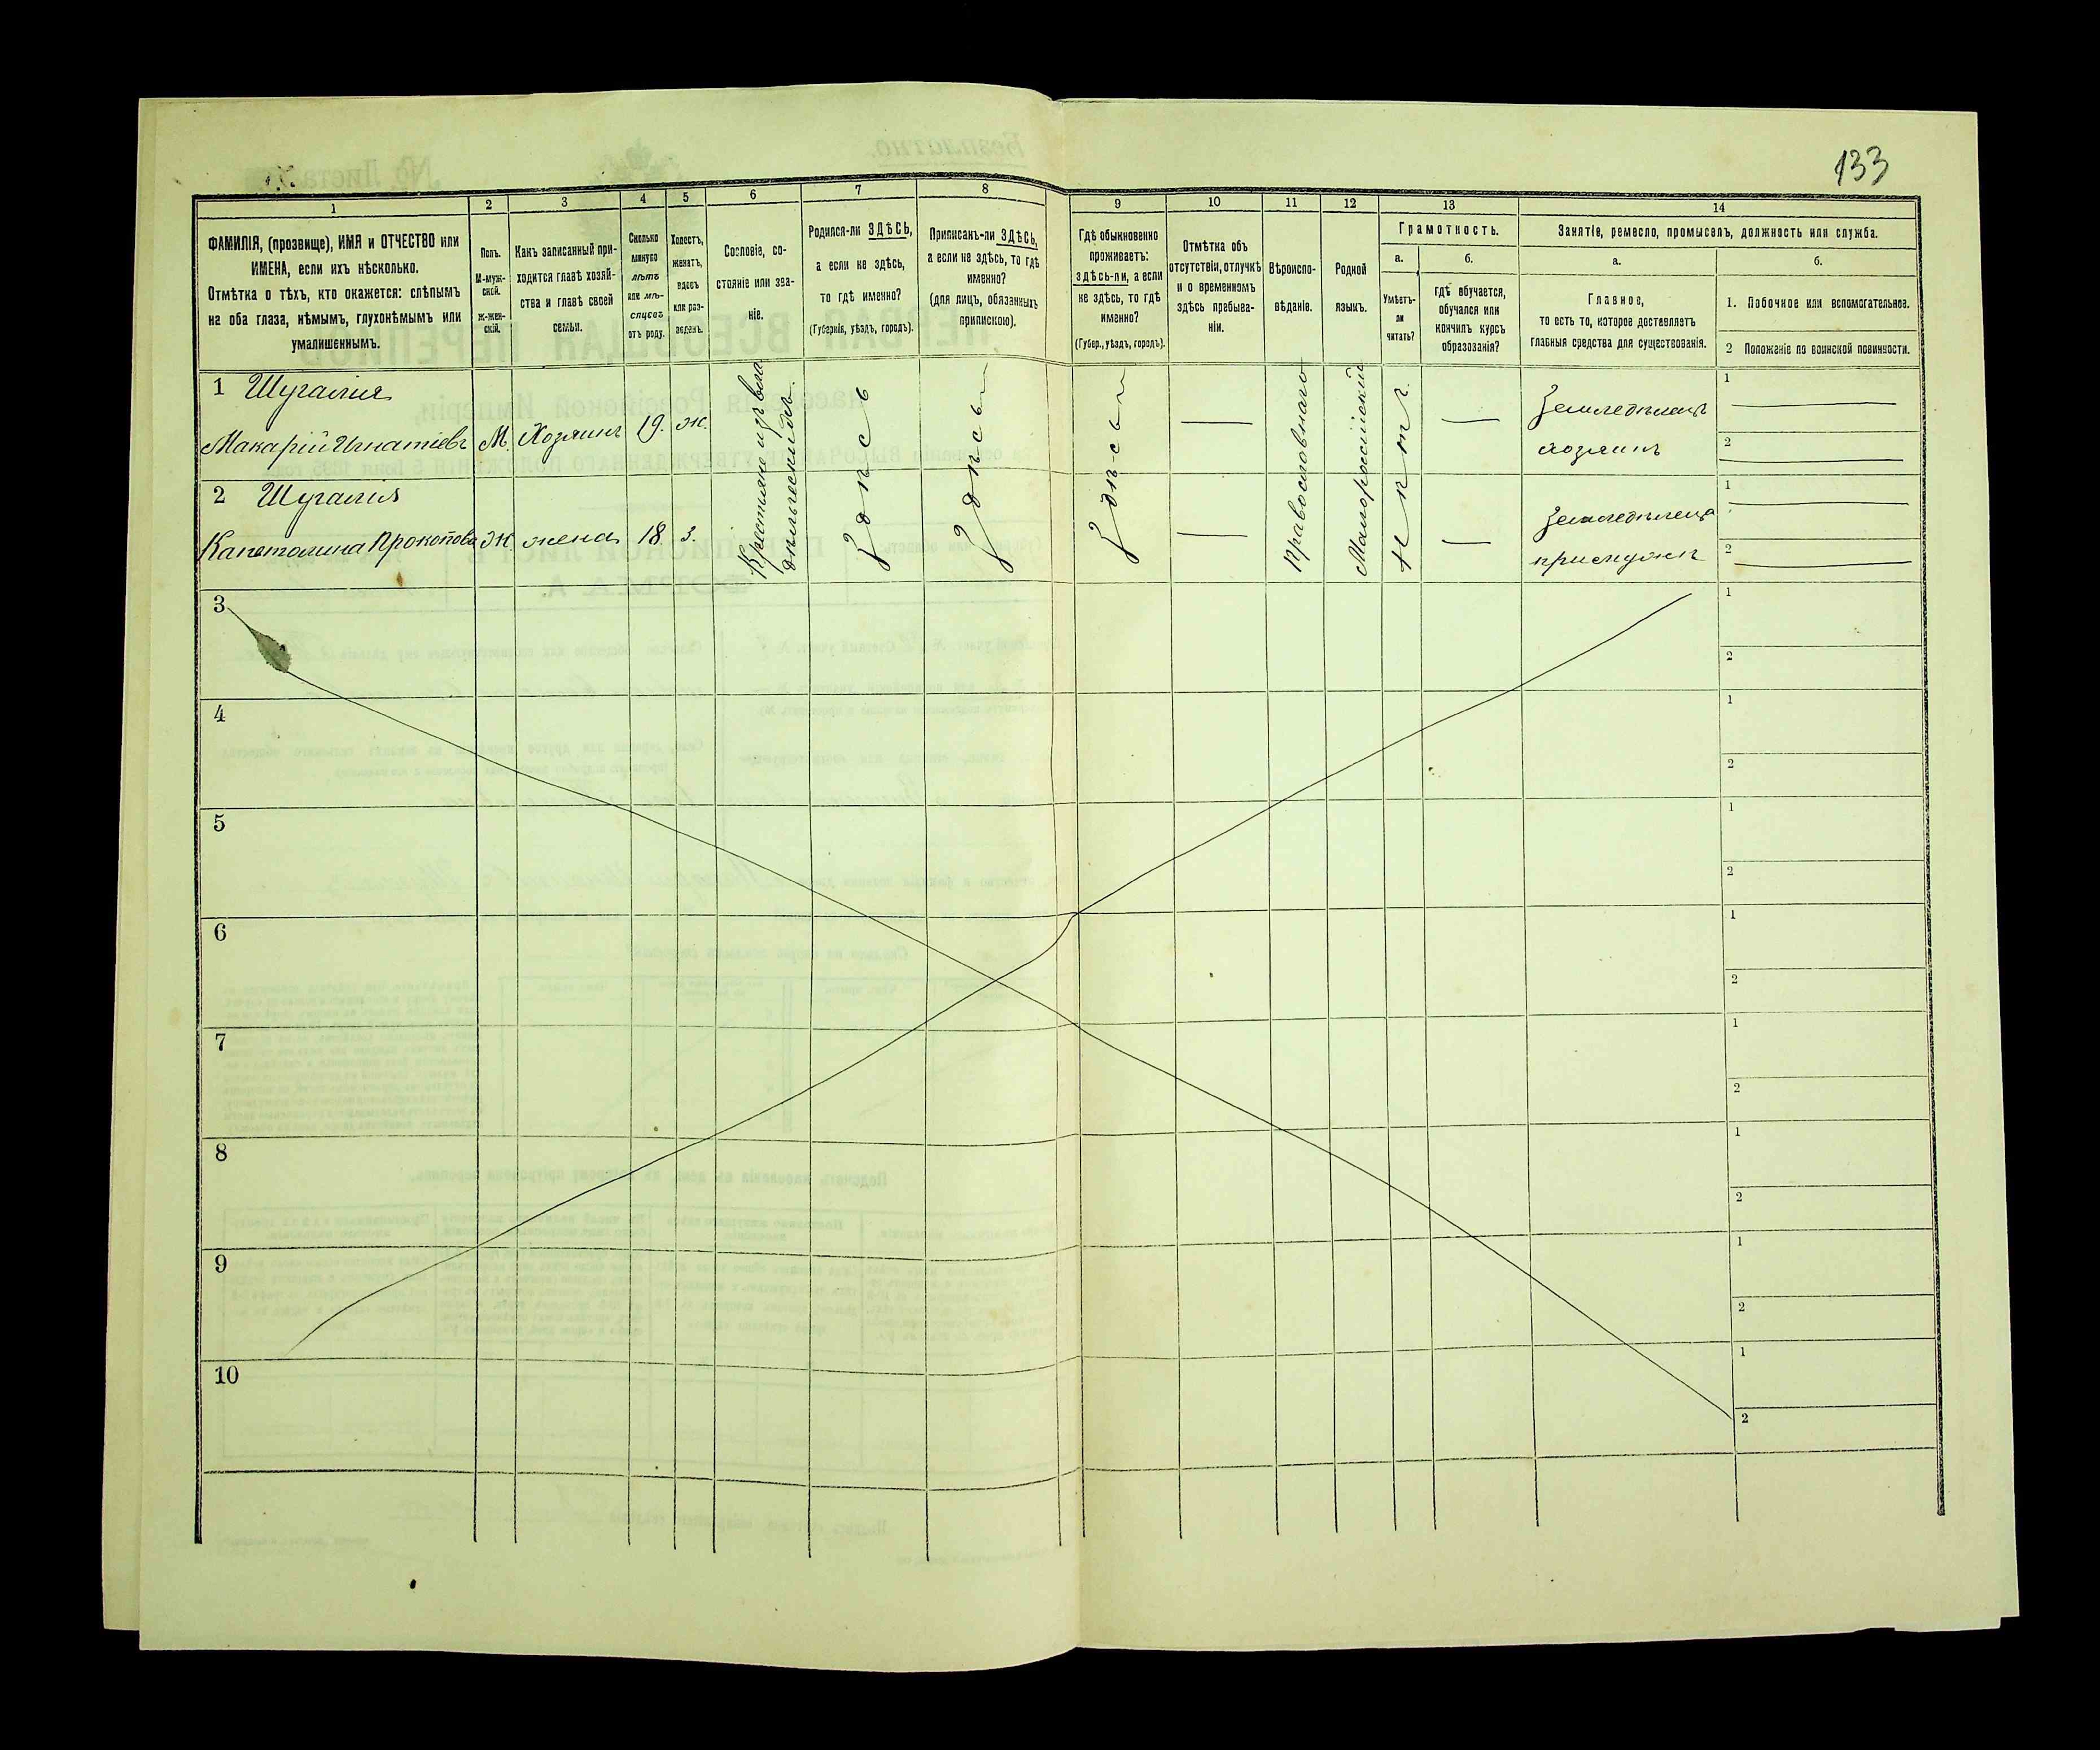 133
1
2
3
4
5
6
7
8
9
10
11
12
13
14
ФАМИЛІЯ, (прозвище), ИМЯ и ОТЧЕСТВО или
ИМЕНА, если ихъ нѣсколько.
Отмѣтка о тѣхъ, кто окажется: слѣпымъ
на оба глаза, нѣмымъ, глухонѣмымъ или
умалишеннымъ.
Полъ.
М-муж-
ской.
Ж-жен-
скій.
Какъ записанный при-
ходится главѣ хозяй-
ства и главѣ своей
семьи.
Сколько
минуло
лѣтъ
или мѣ-
сяцевъ
отъ роду.
Холостъ,
женатъ,
вдовъ
или раз-
веденъ.
Сословіе, со-
стояніе или зва-
ніе.
Родился-ли ЗДѢСЬ,
а если не здѣсь,
то гдѣ именно?
(Губернія, уѣздъ, городъ).
Приписанъ-ли ЗДѢСЬ,
а если не здѣсь, то гдѣ
именно?
(для лицъ, обязанныхъ
припискою).
Гдѣ обыкновенно
проживаетъ:
здѣсь-ли, а если
не здѣсь, то гдѣ
именно?
(Губер., уѣздъ, городъ).
Отмѣтка объ
отсутствіи, отлучкѣ
и о временномъ
здѣсь пребыва-
ніи.
Вѣроиспо-
вѣданіе.
Родной
языкъ.
Грамотность.
а.
Умѣетъ-
ли
читать?
б.
гдѣ обучается,
обучался или
кончилъ курсъ
образованія?
Занятіе, ремесло, промыселъ, должность или служба.
а.
Главное,
то есть то, которое доставляетъ
главныя средства для существованія.
б.
1. Побочное или вспомогательное.
2 Положеніе по воинской повинности.
1 Шугалія
Макарій Игнатіевъ М. Хозяинъ 19. ж.
Крестьяне изъ влад
Здѣсь
Здѣсь
Здѣсь
Православнаго
Малороссійскій
Нѣтъ
Земледѣлецъ
хозяинъ
1
2
2 Шугалія
Капетолина Прокопова Ж. жена 18 з.
Земледѣлецъ
при мужѣ
1
2
3
1
2
4
1
2
5
1
2
6
1
2
7
1
2
8
1
2
9
1
2
10
1
2